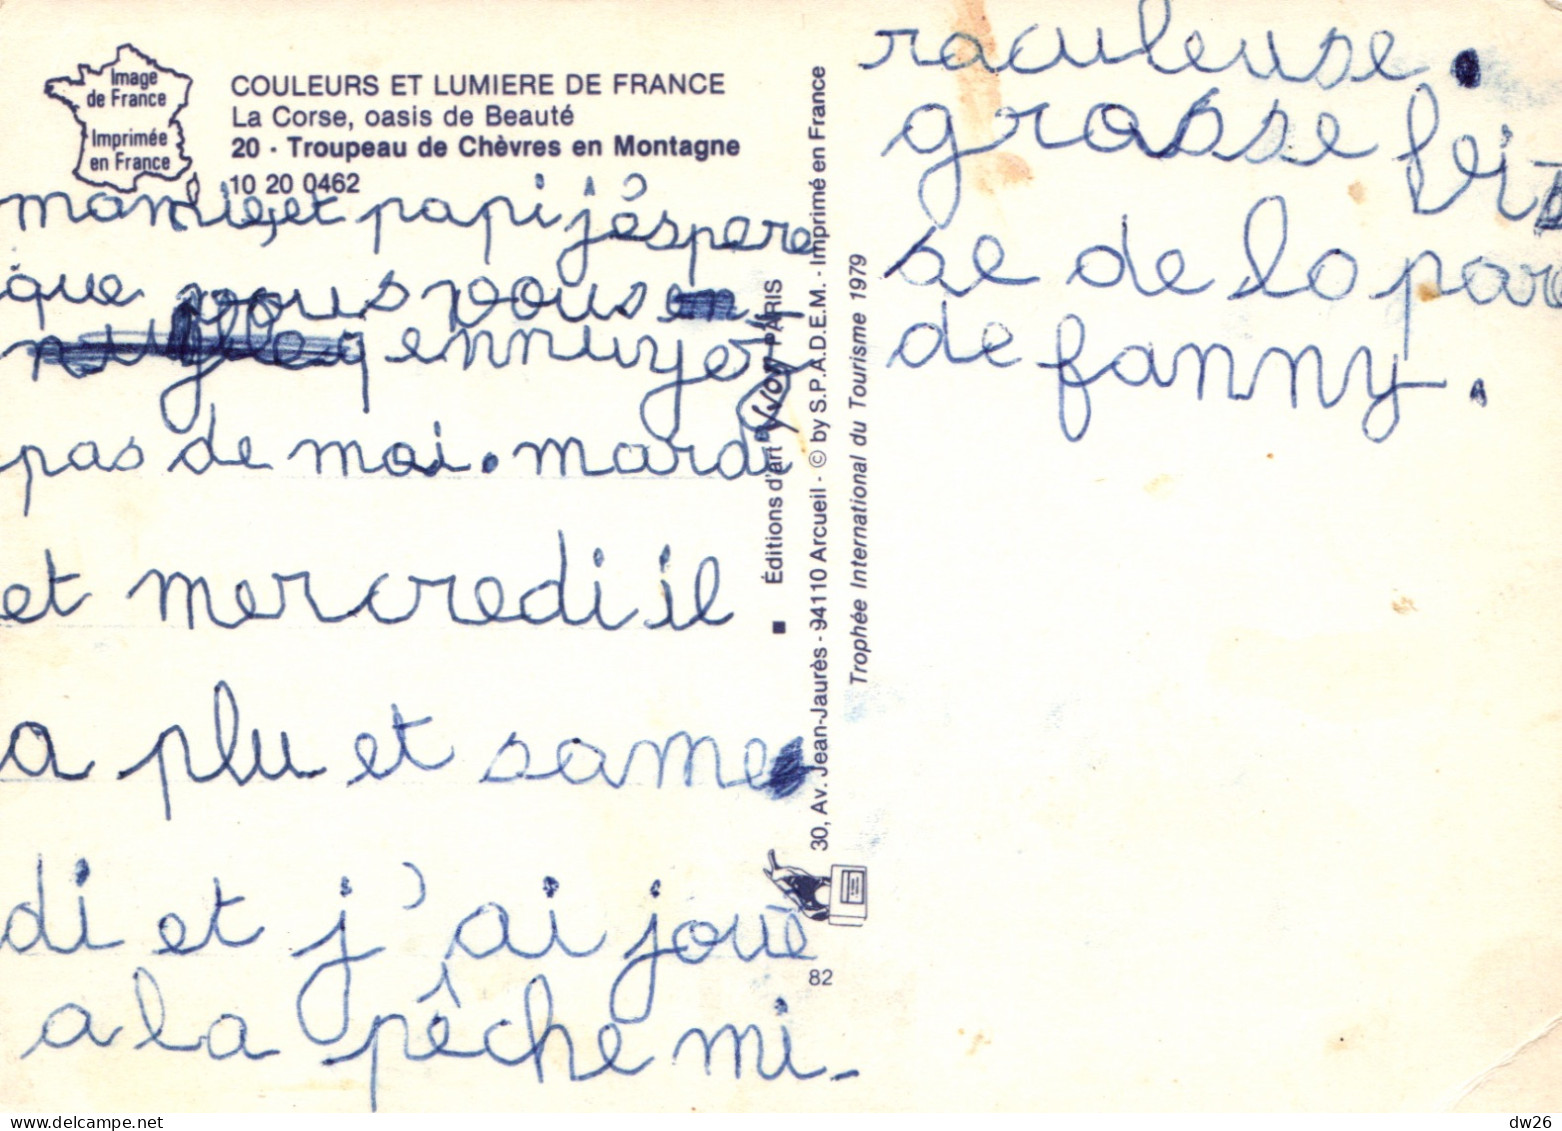 Image
de France
Imprimée
en France
COULEURS ET LUMIERE DE FRANCE
La Corse, oasis de Beauté
20 - Troupeau de Chèvres en Montagne
10 20 0462
mamie,et papi j'éspere
que vous vous
ennuyez
pas de moi. mardi
et mercredi il
a plu et same
di et j'ai joué
a la pêche mi-
raculeuse.
grosse bi
se de la par
de fanny.
■ Éditions d'art YVON PARIS
30, Av. Jean-Jaurès - 94110 Arcueil - © by S.P.A.D.E.M. - Imprimé en France
Trophée International du Tourisme 1979
82
dw26